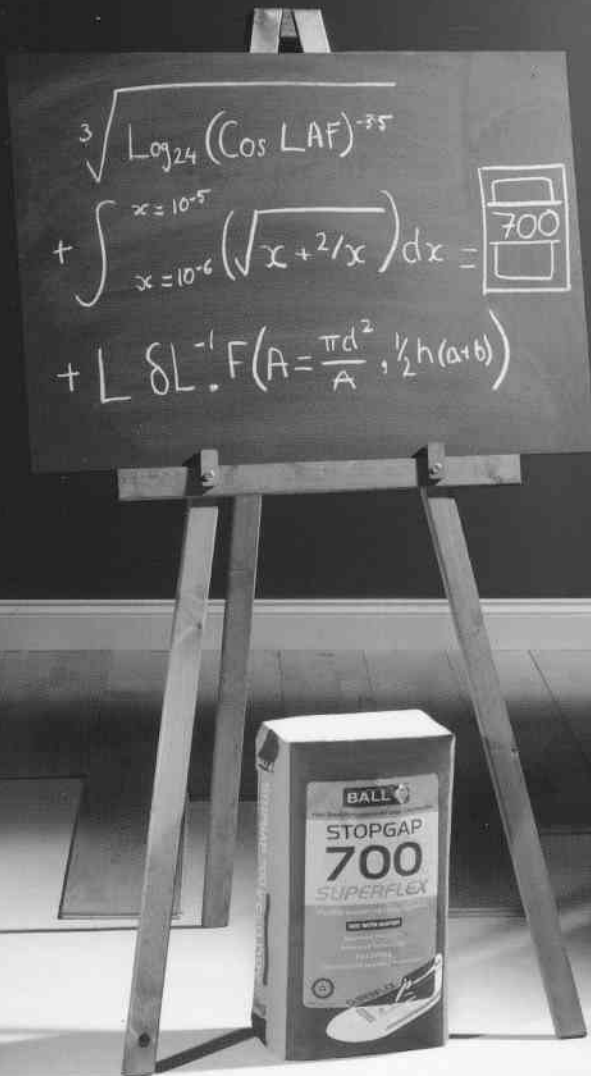 3√Log₂₄(Cos LAF)⁻³⁵
+ ∫ x = 10⁻⁵ x = 10⁻⁶ (√x + 2/x) dx = 700
+ L δL⁻¹. F(A = πd²/A, ½h(a+b))
BALL
STOPGAP
700
SUPERFLEX